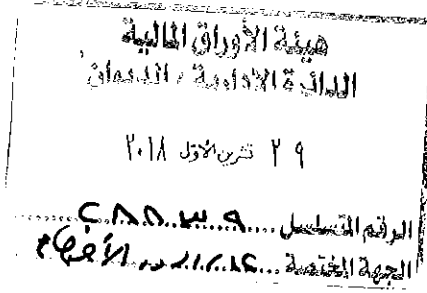 هيئة الأوراق المالية
الدائرة الادارية / الديوان
٢٩ تشرين الاول ٢٠١٨
الرقم المتسلسل
الجهة المختصة ... الأفصاح